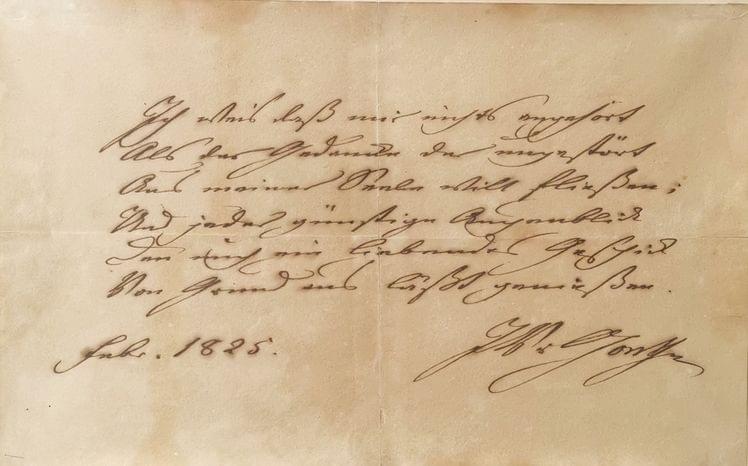 Ich weis daß mir nichts angehört
Als der Gedancke der ungestört
Aus meiner Seele will fließen;
Und jeder günstige Augenblick
Den mich ein liebendes Geschick
Von Grund aus läßt genießen.
Febr. 1825.
JWvGoethe